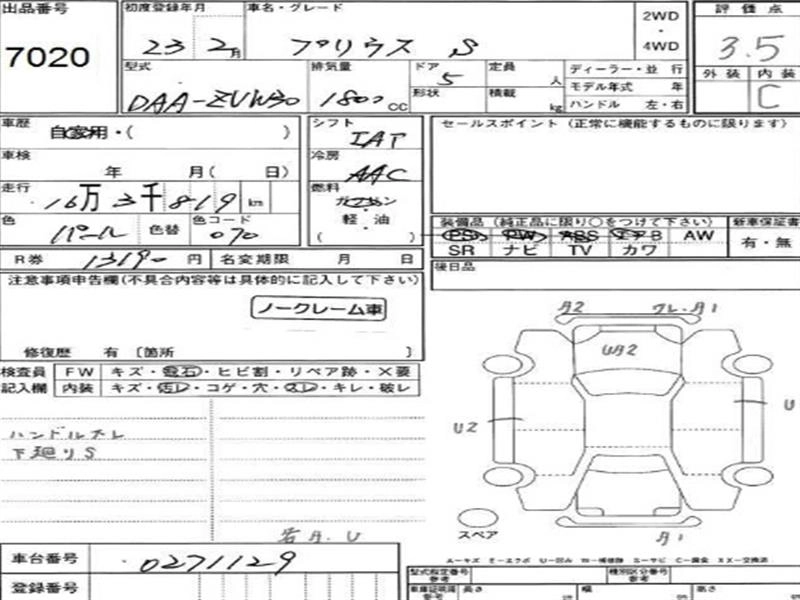 出品番号
7020
初度登録年月
23 2月
車名・グレード
プリウス S
2WD
・
4WD
評価点
3.5
外装 内装
C
型式
DAA-ZVW30
排気量
1800 CC
ドア
5
形状
定員
人
積載
kg
ディーラー・並行
モデル年式 年
ハンドル 左・右
車歴
自家用・( )
車検
年 月( 日)
走行
16万3千819 km
色
パール
色替
色コード
070
シフト
IAT
冷房
AAC
燃料
ガソリン
軽・油
( )
セールスポイント (正常に機能するものに限ります)
装備品 (純正品に限り○をつけて下さい)
PS PW ABS エアB AW
SR ナビ TV カワ
新車保証書
有・無
後日品
R券 13190 円
名変期限 月 日
注意事項申告欄(不具合内容等は具体的に記入して下さい)
ノークレーム車
修復歴 有 〔箇所 〕
検査員 FW キズ・飛石・ヒビ割・リペア跡・X要
記入欄 内装 キズ・汚レ・コゲ・穴・スレ・キレ・破レ
ハンドルスレ
下廻りS
若A.U
A2
ワレ・A1
UA2
U2
U
A1
スペア
A-キズ E-エクボ U-凹み W-補修跡 S-サビ C-腐食 XX-交換済
車台番号
0271129
登録番号
型式指定番号
参考
種別区分番号
参考
車庫証明等
参考
長さ
cm
幅
cm
高さ
cm